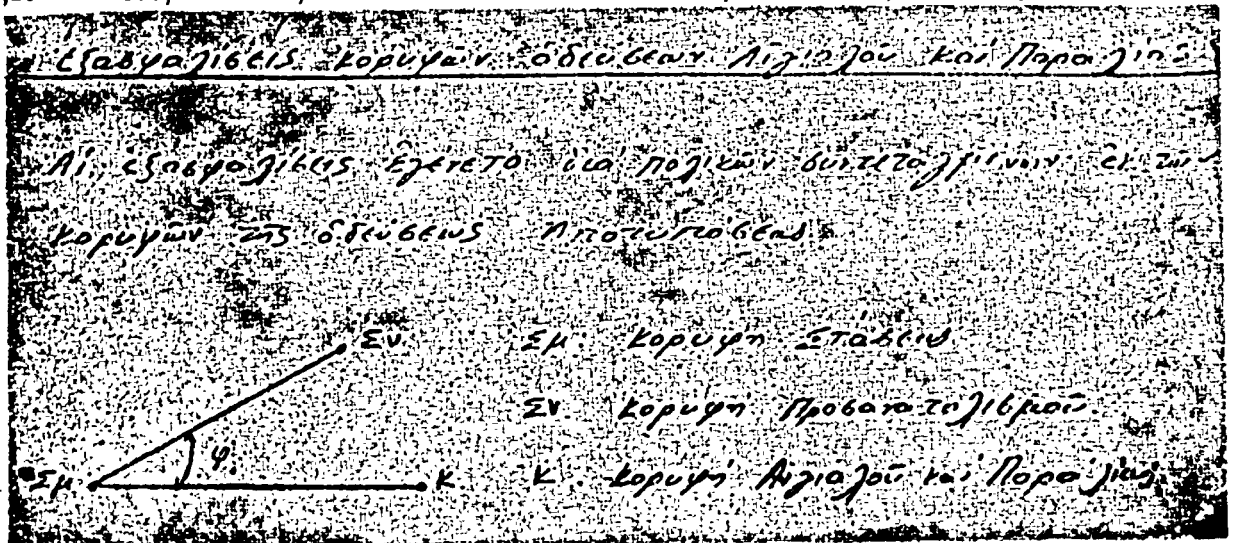 Ἐξασφαλίσεις κορυφῶν ὁδεύσεων Αἰγιαλοῦ καί Παραλίας
Αἱ ἐξασφαλίσεις ἐγένετο διά πολικῶν συντεταγμένων ἐκ τῶν
κορυφῶν τῆς ὁδεύσεως Ἀποτυπώσεως
Σν
Σμ. κορυφή Στάσεως
Σν. κορυφή Προσανατολισμοῦ.
φ.
Σμ. Κ
Κ. κορυφή Αἰγιαλοῦ καί Παραλίας.